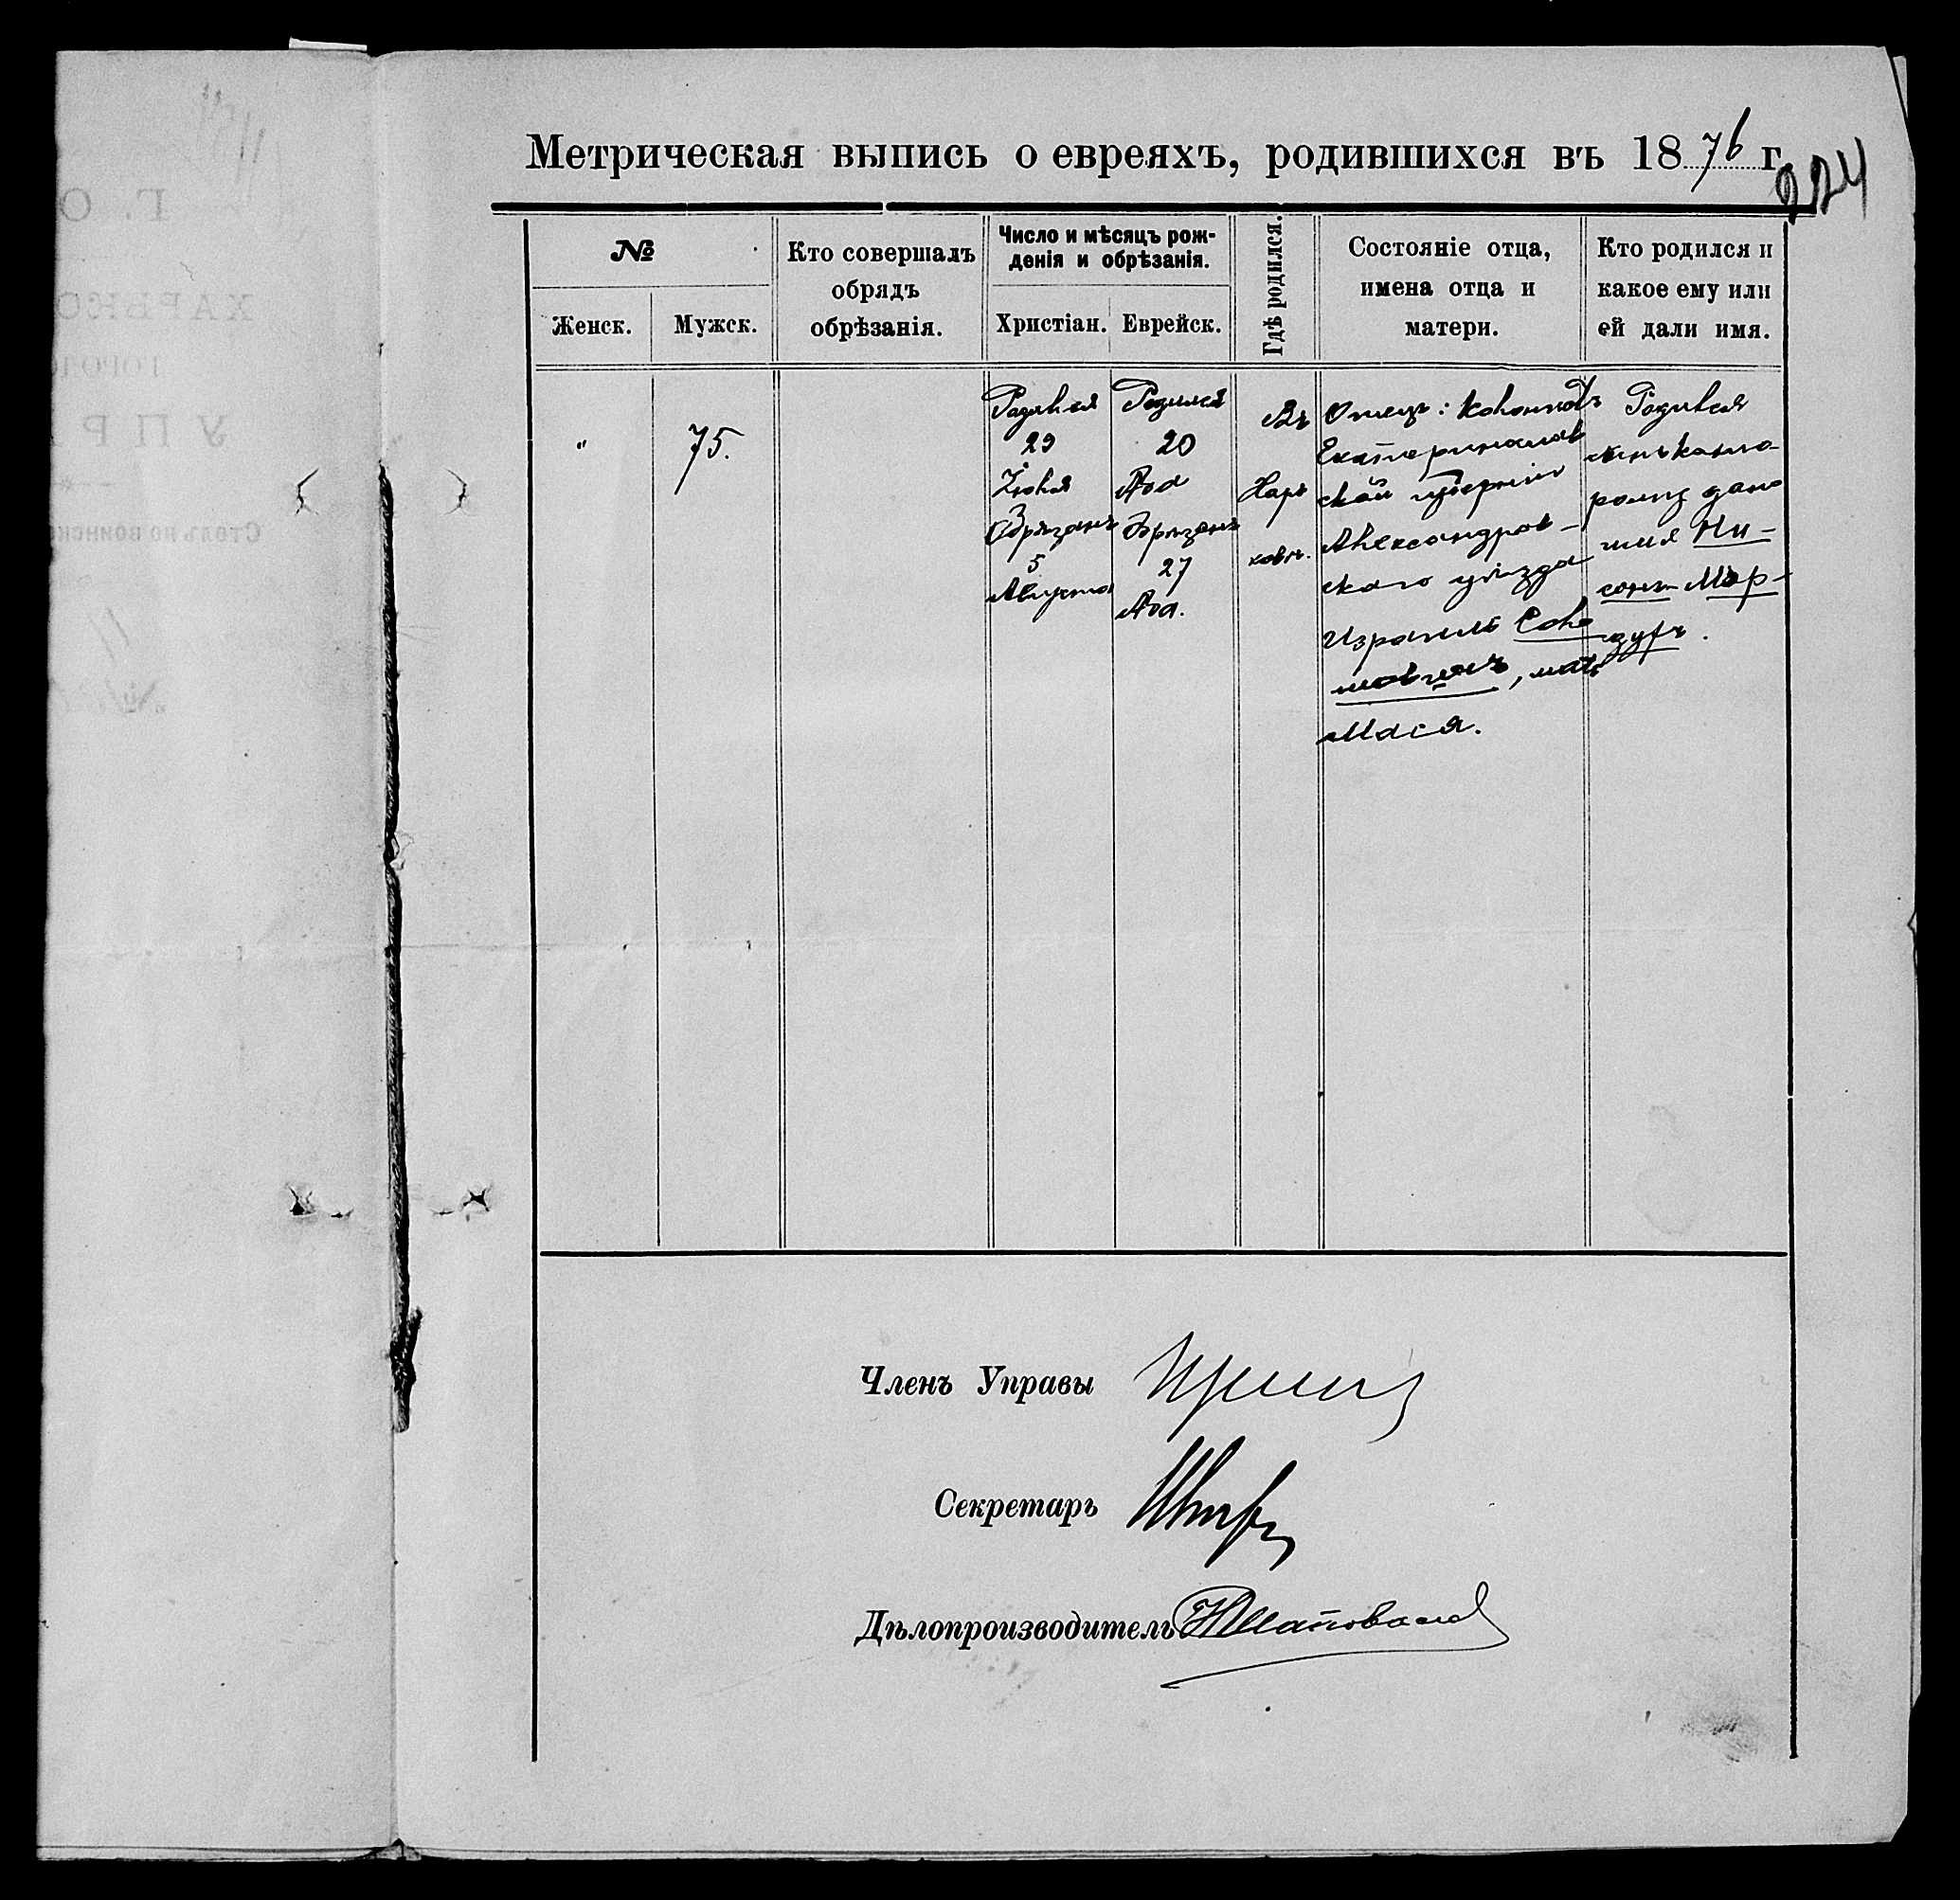 Метрическая выпись о евреяхъ, родившихся въ 1876 г.
224
№
Женск.
Мужск.
Кто совершалъ
обрядъ
обрѣзанія.
Число и мѣсяцъ рож-
денія и обрѣзанія.
Христіан.
Еврейск.
Гдѣ родился.
Состояніе отца,
имена отца и
матери.
Кто родился и
какое ему или
ей дали имя.
"
75.
Родился
29
Іюля
Обрѣзанъ
5
Августа
Родился
20
Ава
Обрѣзанъ
27
Ава.
Въ
Харь
ковѣ.
Отецъ: колонистъ
Екатеринослав
ской губерніи
Александров-
скаго уѣзда
Израиль Соло
мовичъ, мать
Мася.
Родился
кото-
рому дано
имя Ни-
сонъ Мор-
духъ.
Членъ Управы
Секретарь
Дѣлопроизводитель Шаповалов
Г. О
ХАРЬКО
ГОРОДС
УПР
Столъ по воинско